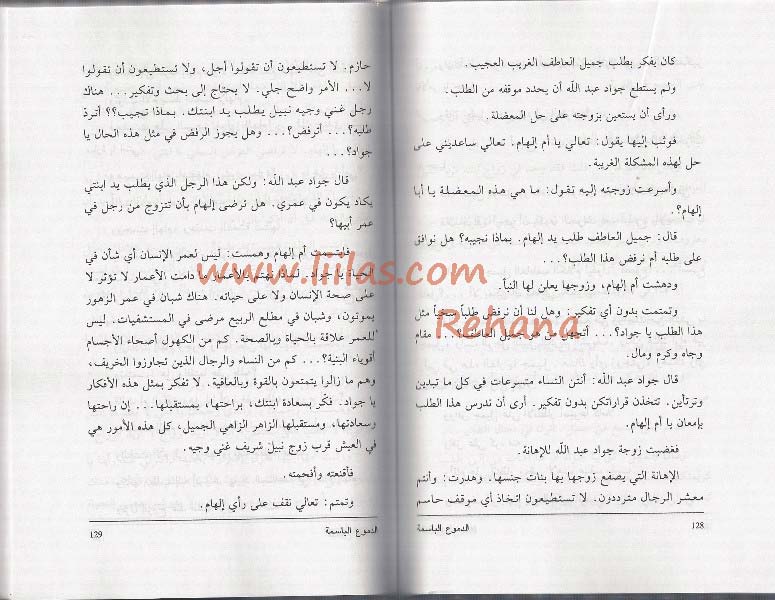 كان يفكر بطلب جميل العاطف الغريب العجيب.
ولم يستطع جواد عبد الله أن يحدد موقفه من الطلب.
ورأى أن يستعين بزوجته على حل المعضلة.
فوثب إليها يقول: تعالي يا أم إلهام. تعالي ساعديني على
حل لهذه المشكلة الغريبة.
وأسرعت زوجته إليه تقول: ما هي هذه المعضلة يا أبا
إلهام؟.
قال: جميل العاطف طلب يد إلهام. بماذا نجيبه؟ هل نوافق
على طلبه أم نرفض هذا الطلب؟...
ودهشت أم إلهام، وزوجها يعلن لها النبأ.
وتمتمت بدون أي تفكير: وهل لنا أن نرفض طلباً سخياً مثل
هذا الطلب يا جواد؟... أتجهل من هو جميل العاطف؟... مقام
وجاه وكرم ومال.
قال جواد عبد الله: أنتن النساء متسرعات في كل ما تبدين
وترتأين. تتخذن قراراتكن بدون تفكير. أرى أن ندرس هذا الطلب
بإمعان يا أم إلهام.
فغضبت زوجة جواد عبد الله للإهانة.
الإهانة التي يصفع زوجها بها بنات جنسها. وهدرت: وأنتم
معشر الرجال مترددون. لا تستطيعون اتخاذ أي موقف حاسم
الدموع الباسمة
128
حازم. لا تستطيعون أن تقولوا أجل، ولا تستطيعون أن تقولوا
لا... الأمر واضح جلي. لا يحتاج إلى بحث وتفكير... هناك
رجل غني وجيه نبيل يطلب يد ابنتك. بماذا تجيب؟؟ أترد
طلبه؟... أترفض؟... وهل يجوز الرفض في مثل هذه الحال يا
جواد؟...
قال جواد عبد الله: ولكن هذا الرجل الذي يطلب يد ابنتي
يكاد يكون في عمري. هل ترضى إلهام بأن تتزوج من رجل في
عمر أبيها؟
فابتسمت أم إلهام وهمست: ليس لعمر الإنسان أي شأن في
الحياة يا جواد. لماذا نهتم بالأعمار ما دامت الأعمار لا تؤثر لا
على صحة الإنسان ولا على حياته. هناك شبان في عمر الزهور
يموتون، وشبان في مطلع الربيع مرضى في المستشفيات. ليس
للعمر علاقة بالحياة وبالصحة. كم من الكهول أصحاء الأجسام
أقوياء البنية؟... كم من النساء والرجال الذين تجاوزوا الخريف،
وهم ما زالوا يتمتعون بالقوة وبالعافية. لا تفكر بمثل هذه الأفكار
يا جواد. فكّر بسعادة ابنتك، براحتها، بمستقبلها... إن راحتها
وسعادتها، ومستقبلها الزاهر الزاهي الجميل، كل هذه الأمور هي
في العيش قرب زوج نبيل شريف غني وجيه.
فأقنعته وأفحمته.
وتمتم: تعالي نقف على رأي إلهام.
الدموع الباسمة
129
www.liilas.com
Rehana